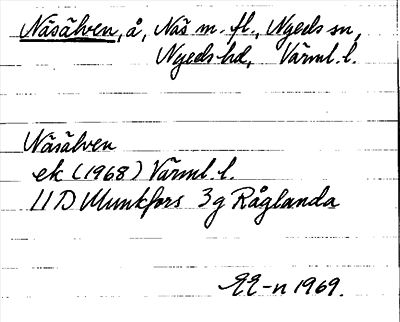 Näsälven, å, Näs m. fl., Nyeds sn,
Nyeds hd, Värml. l.
Näsälven
ek (1968) Värml. l.
11D Munkfors 3g Råglanda
EE-n 1969.